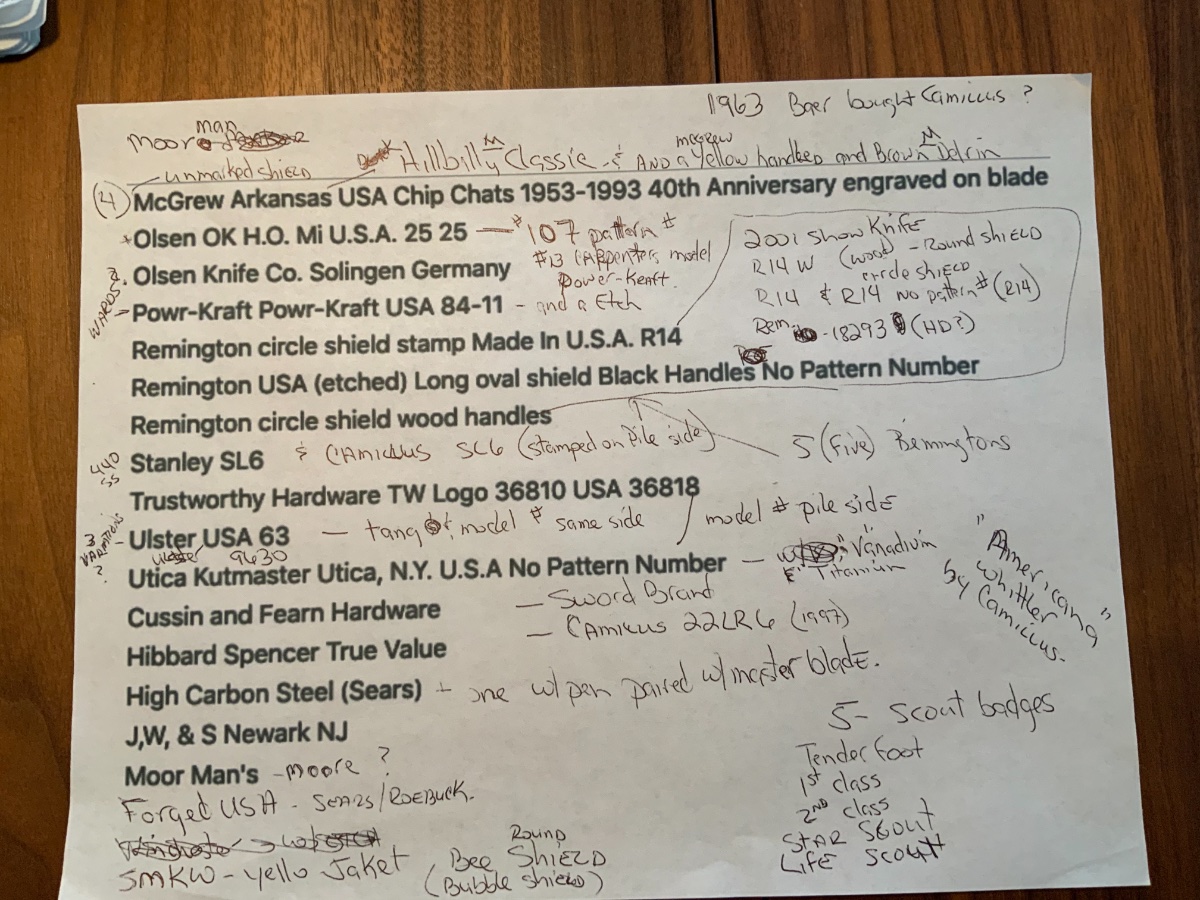 1963 Baer bought Camillus ?
Moore man
unmarked shield
Hillbilly Classic & And a McGrew yellow handled and Brown Delrin
(4) McGrew Arkansas USA Chip Chats 1953-1993 40th Anniversary engraved on blade
Olsen OK H.O. Mi U.S.A. 25 25 — #107 pattern #
#13 CARpenters model
? Olsen Knife Co. Solingen Germany
Power-Kraft.
WARDS
Powr-Kraft Powr-Kraft USA 84-11 - and a Etch
2001 Show Knife
R14 W (wood) - Round SHIELD
circle shield
R14 & R14 no pattern # (R14)
Rem - 18293 (HD?)
Remington circle shield stamp Made In U.S.A. R14
Remington USA (etched) Long oval shield Black Handles No Pattern Number
Remington circle shield wood handles
440 SS
Stanley SL6 & CAMILLUS SL6 (stamped on Pile side)
5 (Five) Remingtons
Trustworthy Hardware TW Logo 36810 USA 36818
model # pile side
3 VARIATIONS ?
Ulster USA 63 — tang & model # same side
ulster 9630
Utica Kutmaster Utica, N.Y. U.S.A No Pattern Number — "Vanadium
E" Titanium
"Americana"
Whittler
by Camillus.
Cussin and Fearn Hardware
— Sword Brand
— CAMILLUS 22LR6 (1997)
Hibbard Spencer True Value
High Carbon Steel (Sears) + one w/pen paired w/master blade.
J,W, & S Newark NJ
Moor Man's - moore ?
Forged USA - SEARS/ROEBUCK.
SMKW - yello Jaket
Round
Bee SHIELD
(Bubble shield)
5- Scout badges
Tenderfoot
1st class
2ND class
STAR SCOUT
LIFE SCOUT